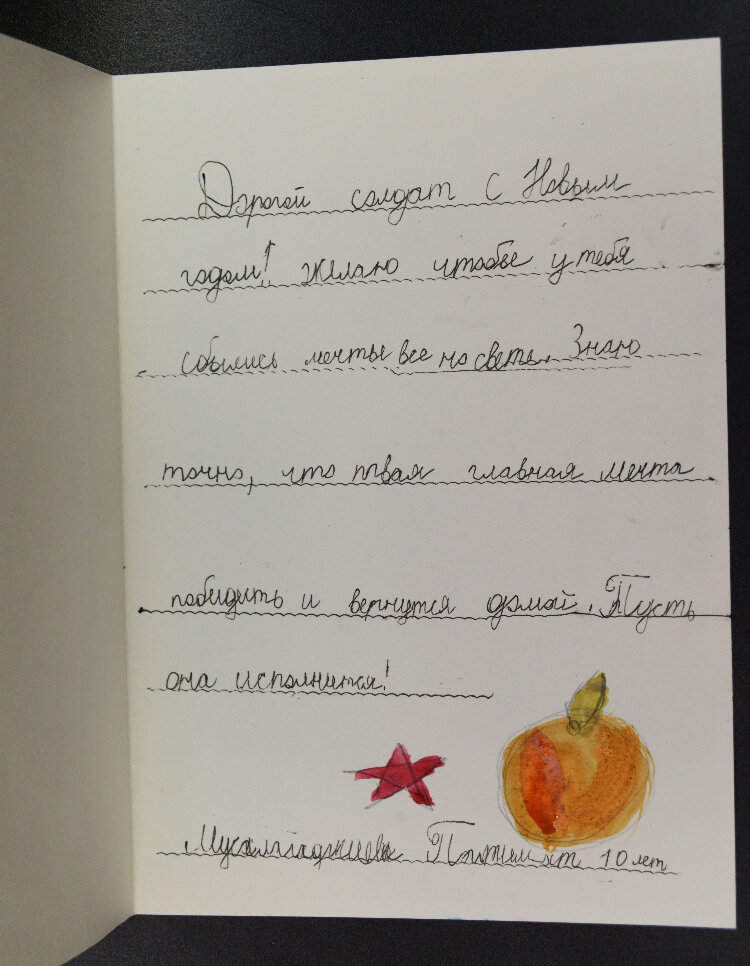 Дорогой солдат с Новым
годом! Желаю чтобы у тебя
сбылись мечты все на свете. Знаю
точно, что твоя главная мечта
победить и вернутся домой. Пусть
она исполнится!
10 лет